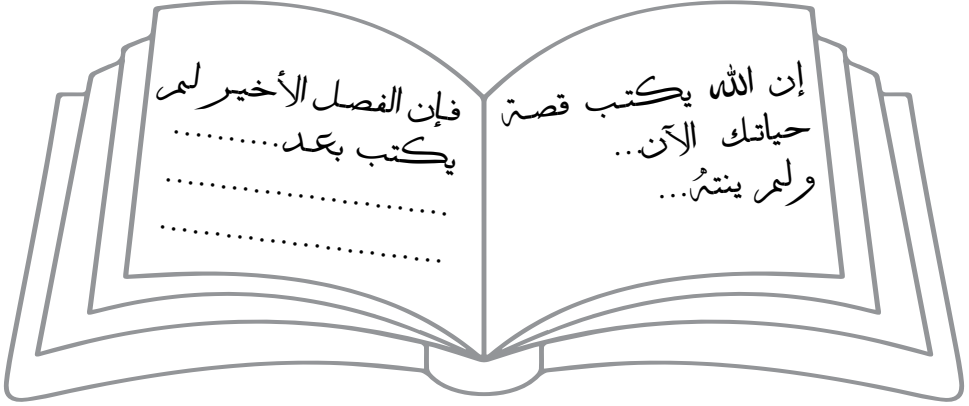 إن الله يكتب قصة
حياتك الآن...
ولم ينتهُ...
فإن الفصل الأخير لم
يكتب بعد..........
...........................
...........................